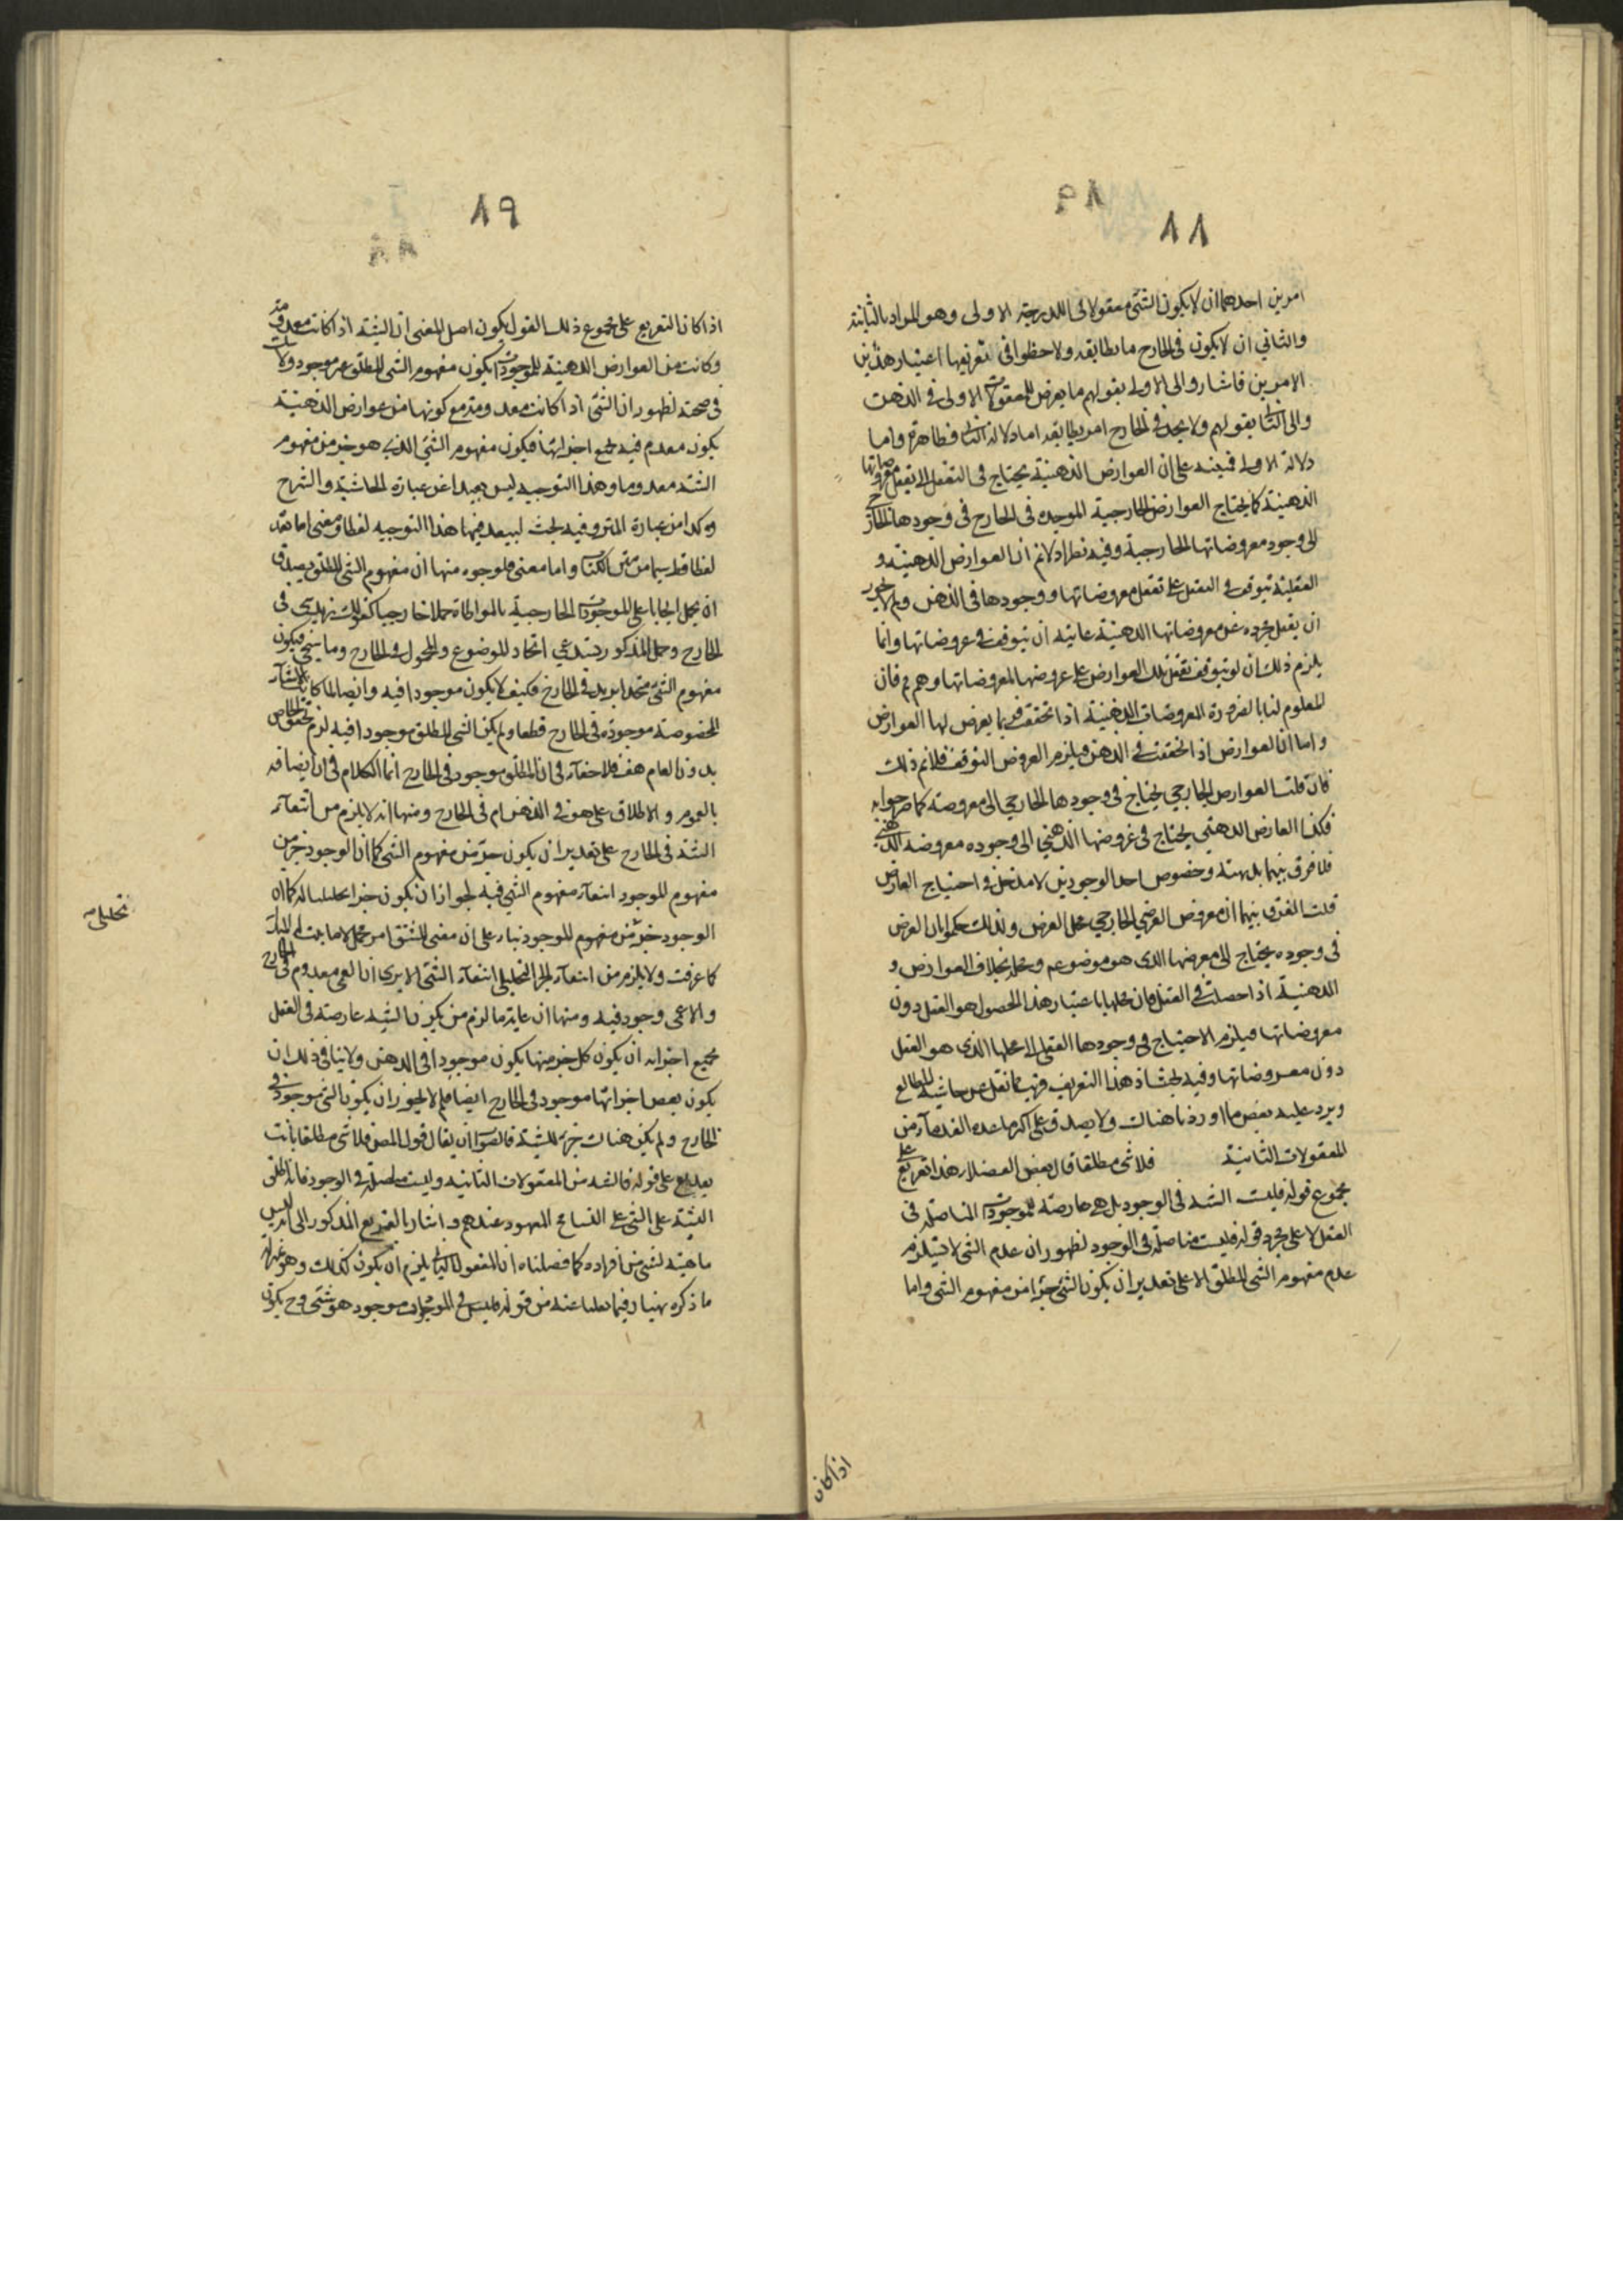 ٨٨
امرين احدهما ان لا يكون الشئ معقولا فى الدرجة الاولى وهو المراد بالثانية
والثاني ان لا يكون فى الخارج ما يطابقه ولاحظوا فى تعريفها اعتبار هذين
الامرين فاشاروا الى الاول بقولهم ما يعرض للمعقولات الاولى فى الذهن
والى الثانى بقولهم ولا يوجد فى الخارج امر يطابقه اما دلالة الثانى فظاهرة واما
دلالة الاول فمبنية على ان العوارض الذهنية يحتاج فى التعقل الى تعقل معروضاتها
الذهنية كما يحتاج العوارض الخارجية الموجدة فى الخارج فى وجودها الخارجى
الى وجود معروضاتها الخارجية وفيه نظر اذ لانم ان العوارض الذهنية و
العقلية تتوقف فى التعقل على تعقل معروضاتها ووجودها فى الذهن ولم لا يجوز
ان يعقل مجردة عن معروضاتها الذهنية غايته ان تتوقف فى عروضاتها وانما
يلزم ذلك ان لو توقف تعقل تلك العوارض على عروضها لمعروضاتها وهو مم فان
المعلوم لنا بالضرورة ان المعروضات الذهنية اذا تحققت فربما يعرض لها العوارض
واما ان العوارض اذا تحققت فى الذهن فيلزم العروض التوقف فلانم ذلك
فان قلت العوارض الخارجى يحتاج فى وجودها الخارجى الى معروضه كما صرحوا به
فكذا العارض الذهنى يحتاج فى عروضها الذهنى الى وجوده معروضه الذهنى
فلا فرق بينهما بديهة وخصوص احد الوجودين لا مدخل فى احتياج العارض
قلت الفرق بينهما ان معروض العرضى الخارجى محل العرض ولذلك حكموا بان العرض
فى وجوده يحتاج الى معرضها الذى هو موضوعه ومحله بخلاف العوارض و
الذهنية اذا حصلت فى العقل فان محلها باعتبار هذا الحصول هو العقل دون
معروضاتها فيلزم الاحتياج فى وجودها العقلى الى محلها الذى هو العقل
دون معروضاتها وفيه بحث اذ هذا التعريف قريب مما نقل عن حاشية المطالع
ويرد عليه بعض ما اوردنا هناك ولا يصدق على اكثر ما عده القدماء من
المعقولات الثانية فلا شئ مطلقا قال بعض الفضلاء هذا تفريع على
مجموع قوله فليست الشيئية فى الوجود بل هى عارضة للموجودات المتاصلة فى
العقل لا على مجرد قوله فليست متاصلة فى الوجود لظهور ان عدم الشى لا يستلزم
عدم مفهوم الشى المطلق الا على تقدير ان يكون الشئ جزءا من مفهوم الشى واما
اذا كان
٨٩
اذا كان التفريع على مجموع ذلك القول يكون اصل المعنى ان الشيئية اذا كانت معدومة
وكانت من العوارض الذهنية للموجودات يكون مفهوم الشئ المطلق غير موجود ولا شك
فى صحته لظهور ان الشئ اذا كانت معدومة مع كونها من عوارض الذهنية
يكون معدوم فيه لجميع اجزائها فيكون مفهوم الشئ الذى هو جزء من مفهوم
الشيئية معدوما وهذا التوجيه ليس بعيدا عن عبارة الحاشية والشرح
وكذا من عبارة المتن وفيه بحث لبعد فيهما هذا التوجيه لفظا ومعنى اما بعده
لفظا فظ سيما من متن الكتاب واما معنى فلوجوه منها ان مفهوم الشئ المطلق يصدق
ان يحمل ايجابا على الموجودات الخارجية بالمواطاة حملا خارجيا كقولك زيد شئ فى
الخارج وحمل المذكور يستدعى اتحاد الموضوع والمحمول فى الخارج وما ينتجى فيكون
مفهوم الشئ متحدا بزيد فى الخارج فكيف لا يكون موجودا فيه وايضا لما كانت الاشياء
المخصوصة موجودة فى الخارج قطعا ولم يكن الشى المطلق موجودا فيه لزم تحقق الخاص
بدون العام هف فلا خفاء فى ان المطلق موجود فى الخارج انما الكلام فى ان ايضافه
بالعموم والاطلاق على هو فى الذهن ام فى الخارج ومنها انه لا يلزم من انتفاء
الشيئية فى الخارج على تقدير ان يكون جزء من مفهوم الشى كما ان الوجود جزء من
مفهوم الموجود انتفاء مفهوم الشى فيه لجواز ان يكون جزءا تحليليا له كما ان
الوجود جزء من مفهوم الموجود بناء على ان معنى المشتق امر مجمل لا ما يثبت له المبدأ
كما عرفت ولا يلزم من انتفاء الجزء التحليلى انتفاء الشئ الا يرى ان العمى معدوم فى الخارج
والاعمى وجود فيه ومنها ان غاية ما لزم من كون الشيئية عارضة فى العقل
بجميع اجزائه ان يكون كل جزء منها يكون موجودا فى الذهن ولا ينافى ذلك ان
يكون بعض اجزائها موجود فى الخارج ايضا فلم لا يجوز ان يكون الشئ موجودا فى
الخارج ولم يكن هناك جزئية للشيئية فالصواب ان يقال قول المص فلا شئ مطلقا ثابت
تفريع على قوله فالشيئية من المعقولات الثانية وليست متاصلة فى الوجود فانه اطلق
الشيئية على الشئ على التسامح المعهود عندهم واشار بالتفريع المذكور الى انه ليس
ماهية لشئ من افراده كما فصلناه ان المعقول الثانى يلزم ان يكون كذلك وهو بمنزلة
ما ذكره بهمنيار فيما نقلنا عنه من قوله فليس فى الموجودات موجود هو شئ وح يكون
تحليلى